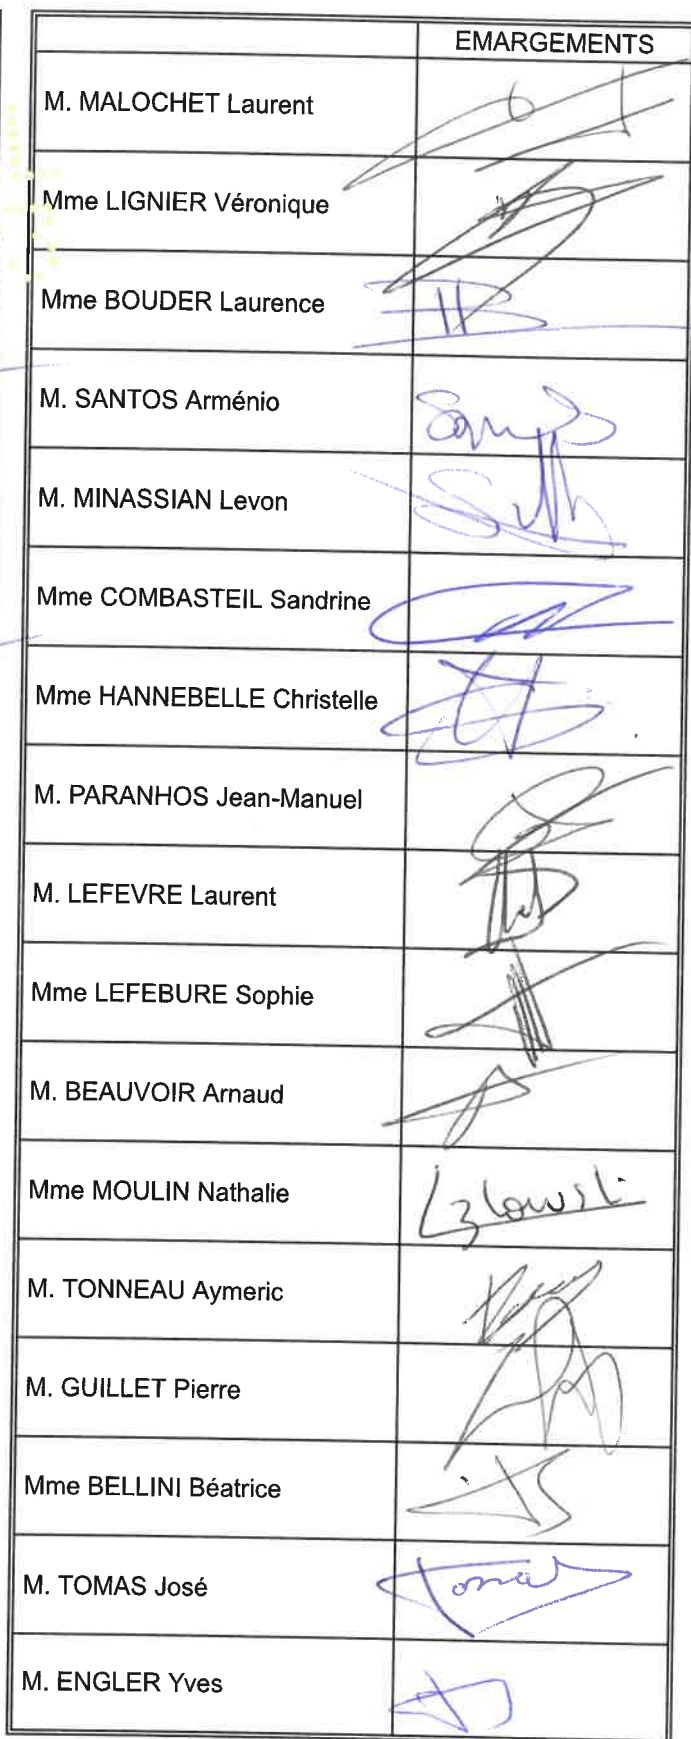 EMARGEMENTS
M. MALOCHET Laurent
Mme LIGNIER Véronique
Mme BOUDER Laurence
M. SANTOS Arménio
M. MINASSIAN Levon
Mme COMBASTEIL Sandrine
Mme HANNEBELLE Christelle
M. PARANHOS Jean-Manuel
M. LEFEVRE Laurent
Mme LEFEBURE Sophie
M. BEAUVOIR Arnaud
Mme MOULIN Nathalie
M. TONNEAU Aymeric
M. GUILLET Pierre
Mme BELLINI Béatrice
M. TOMAS José
M. ENGLER Yves